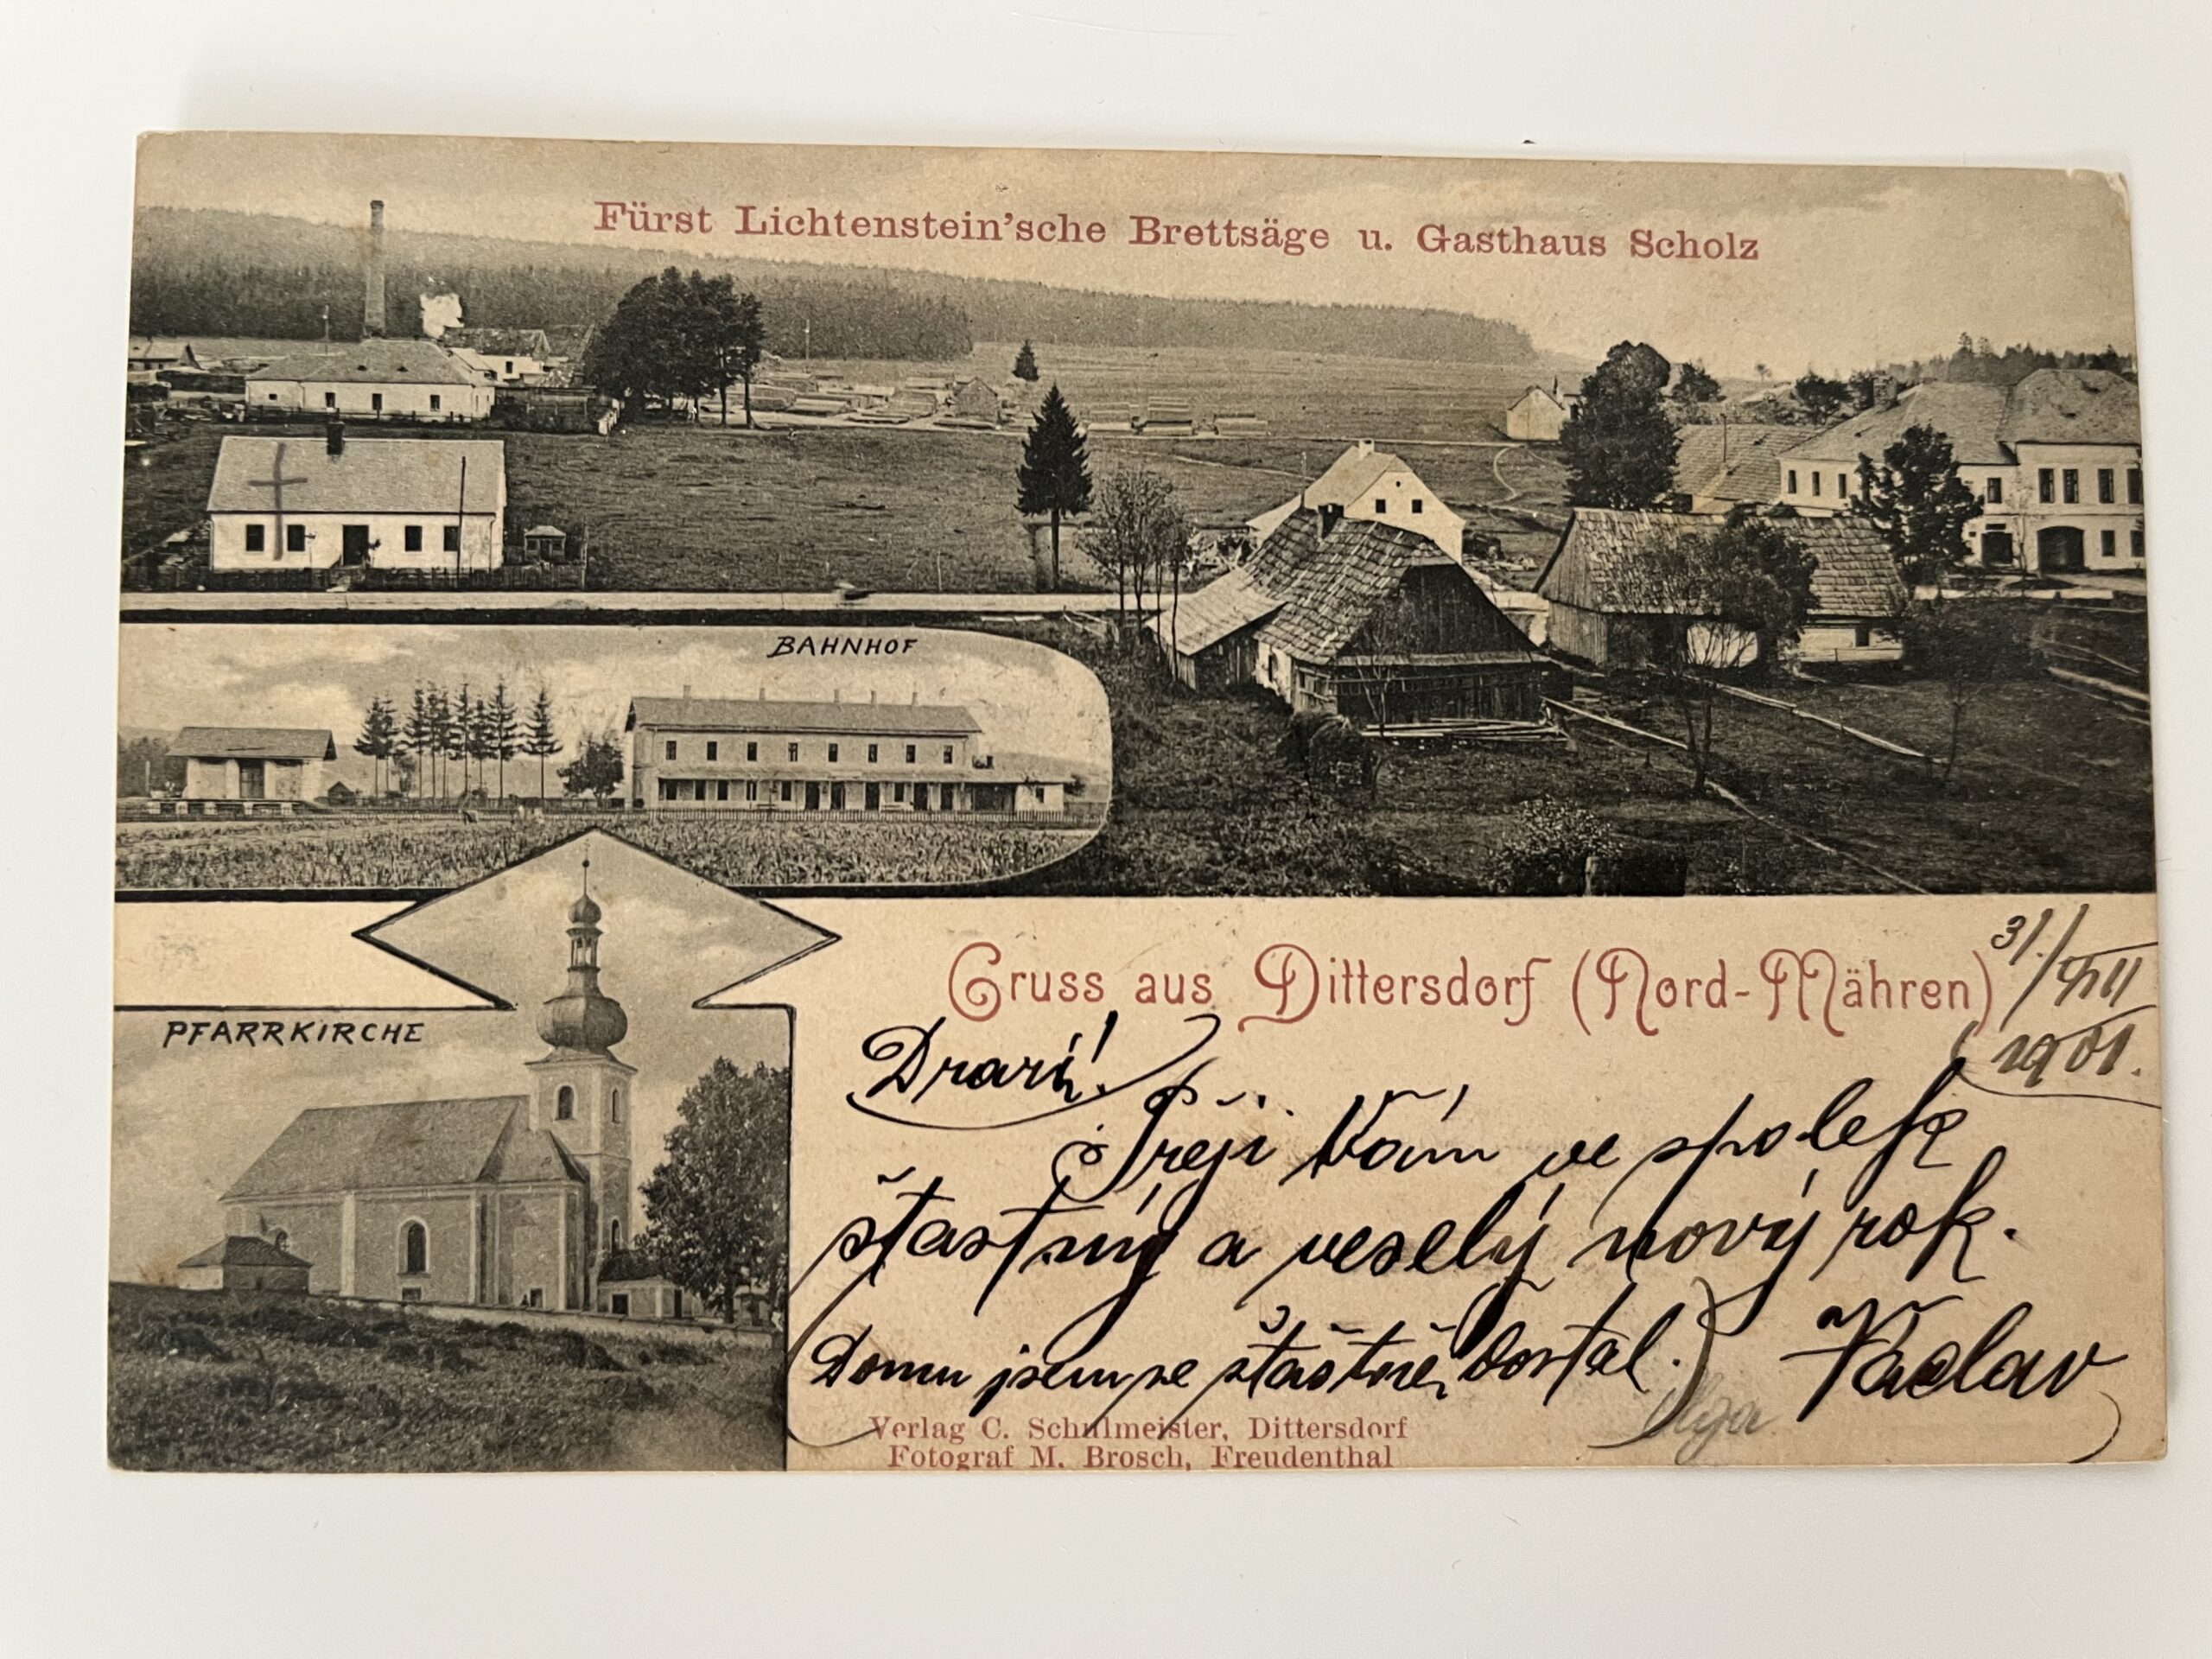 Fürst Lichtenstein'sche Brettsäge u. Gasthaus Scholz
BAHNHOF
PFARRKIRCHE
Gruss aus Dittersdorf (Nord-Mähren)
31./XII
1901.
Drazí!
Přeji Vám ve spolek
štastný a veselý nový rok.
Domu jsem se štastně dostal.)
Václav
Olga
Verlag C. Schulmeister, Dittersdorf
Fotograf M. Brosch, Freudenthal